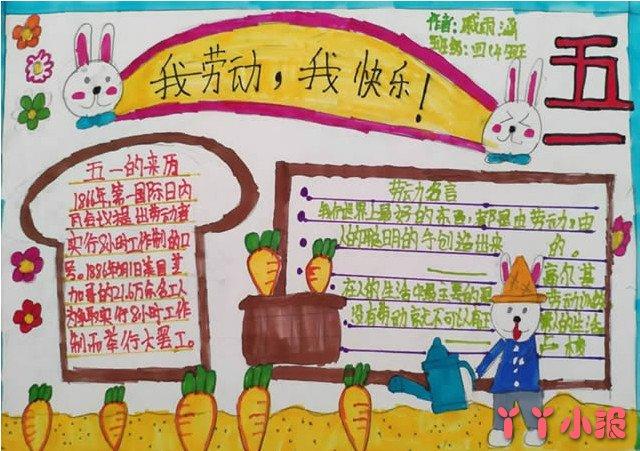 作者:戚雨涵
班级:四(4)班
我劳动,我快乐!
五一
五一的来历
1866年,第一国际日内
瓦会议提出劳动者
实行8小时工作制的口
号。1886年5月1日美国芝
加哥的21.6万余名工人
为争取实行8小时工作
制而举行大罢工。
劳动名言
我们世界上最美好的东西,都是由劳动,由
人的聪明的手创造出来的。
高尔基
在人的生活中最主要的
劳动
没有劳动就不可以有
人的生活
丫丫小报